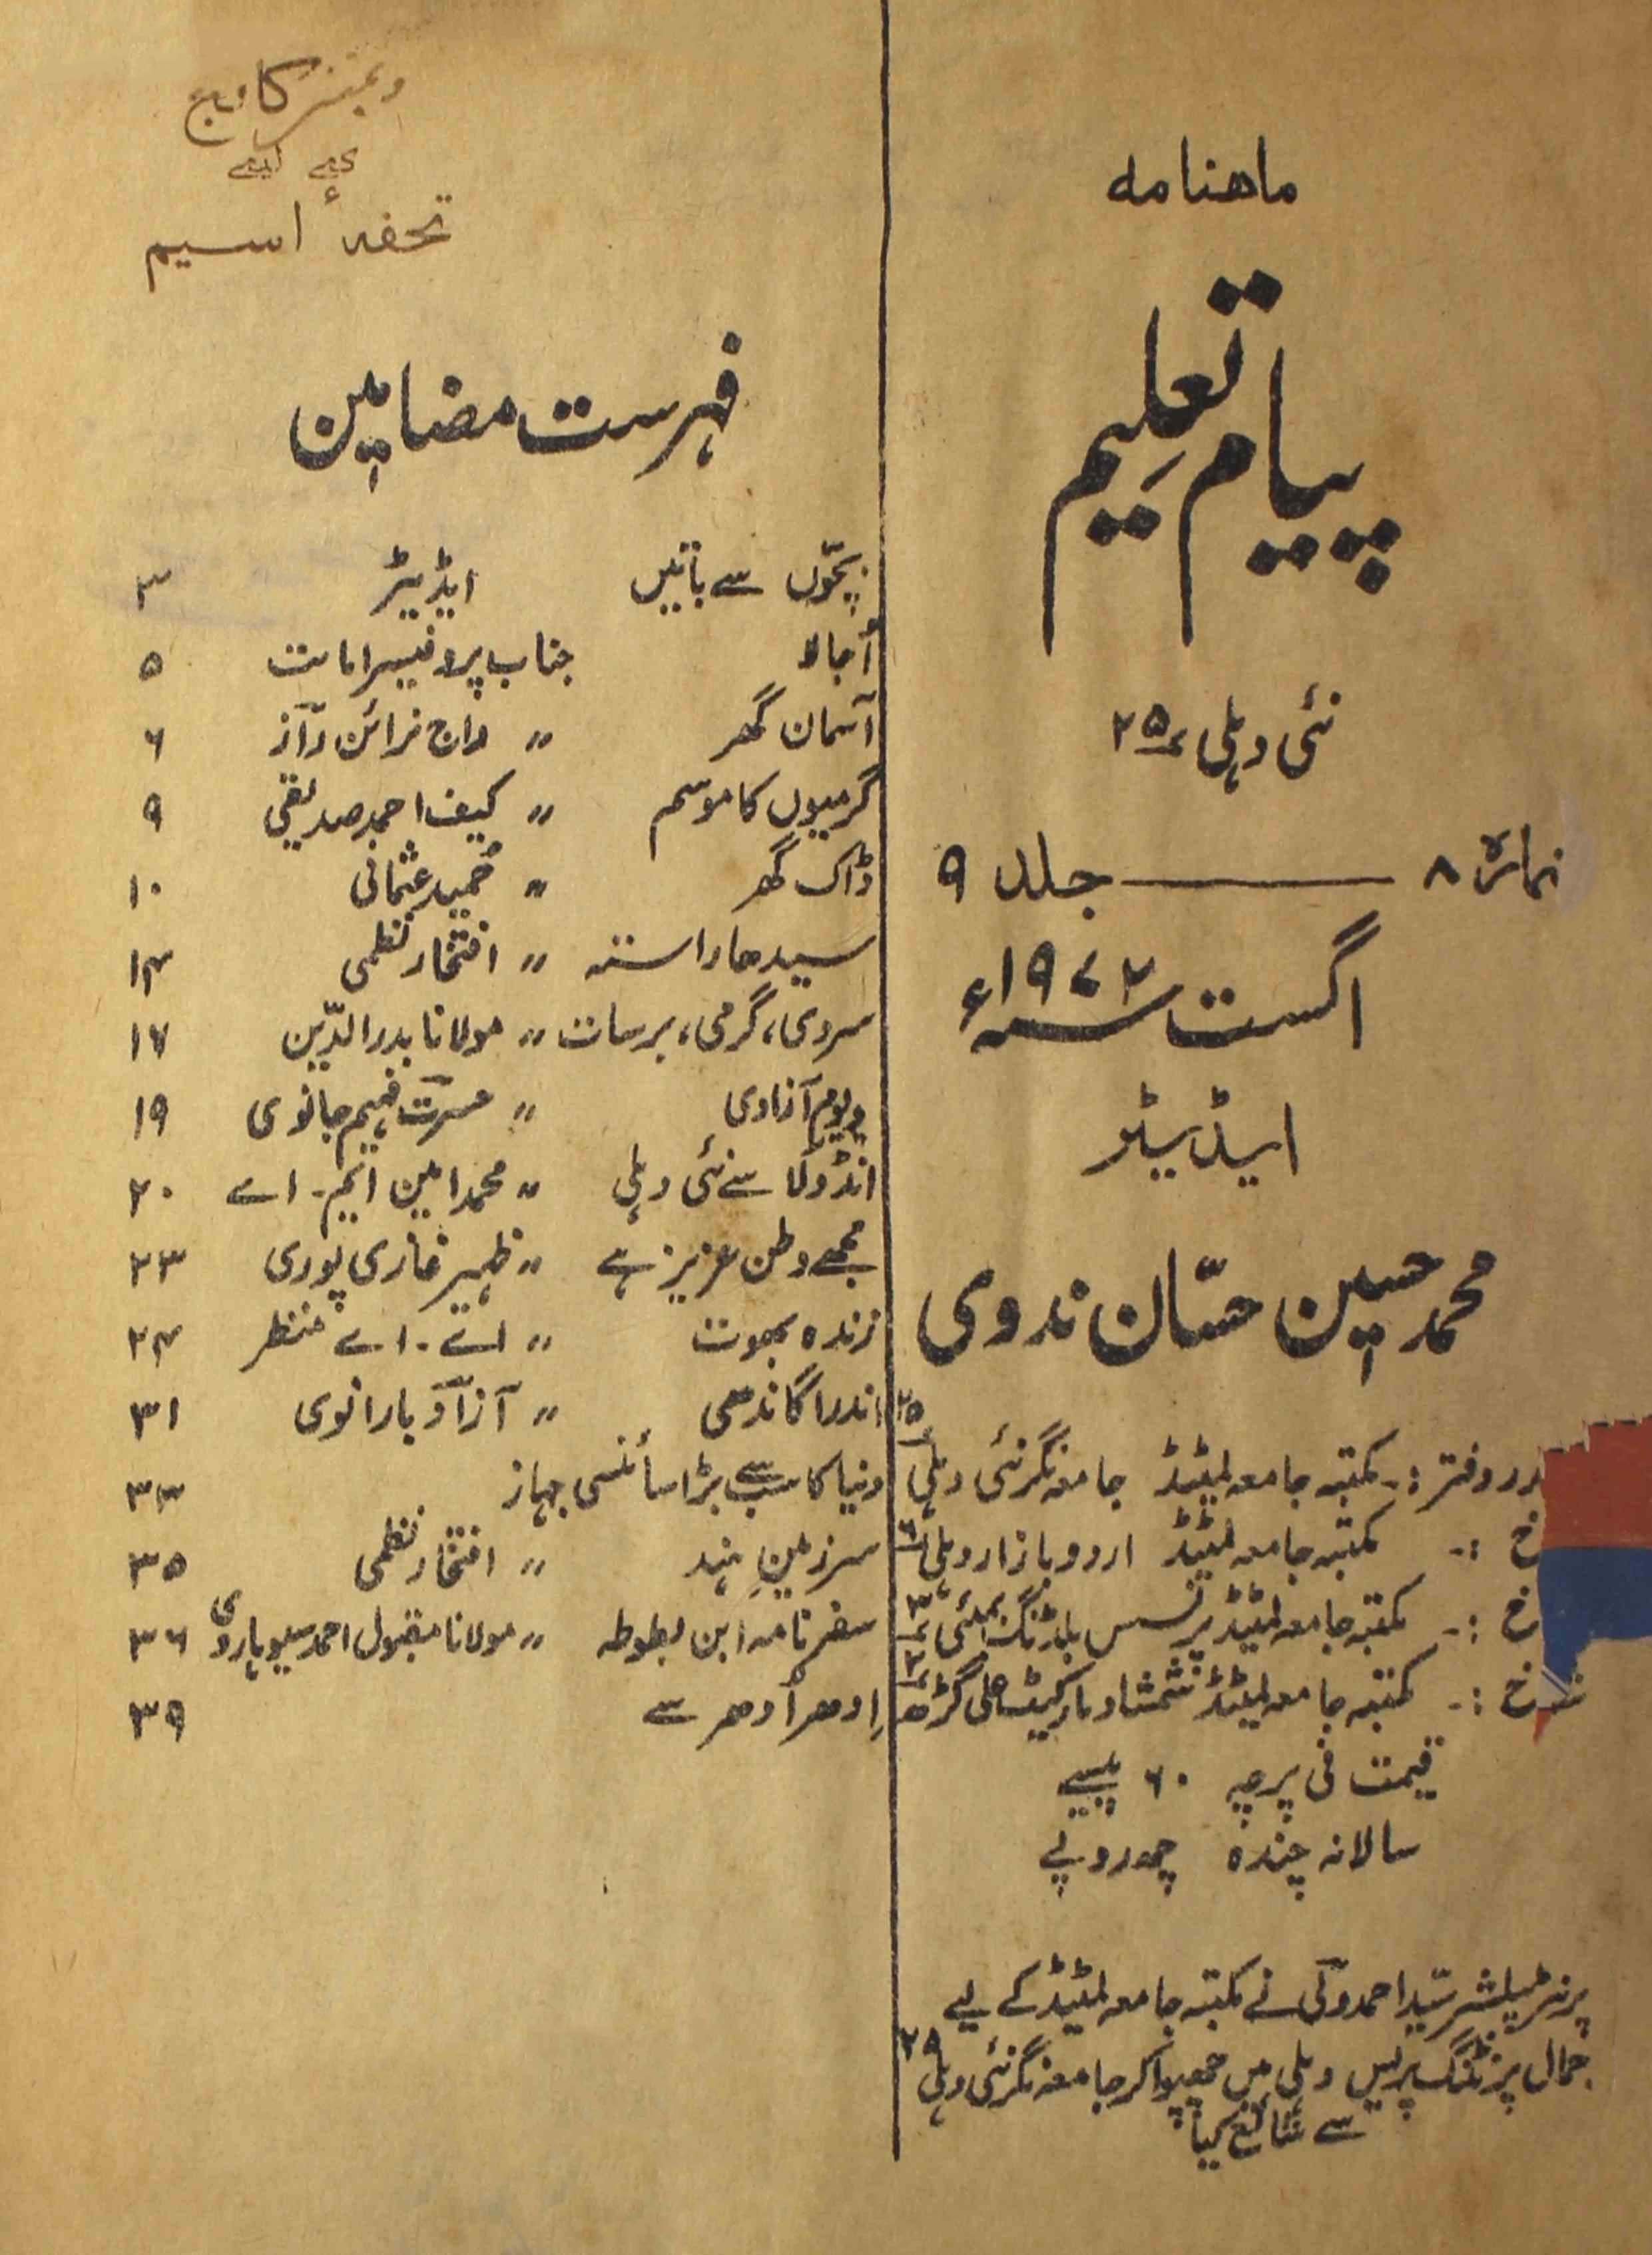 ماهنامه
پیام تعلیم
نئی دہلی ۲۵
جلد ۹ نمارہ ۸
اگست ۱۹۷۲ء
ایڈیٹر
محمد حسین حسّان ندوی
در دفتر :۔ مکتبہ جامعہ لمیٹڈ جامعہ نگر نئی دہلی ۲۵
خ :۔ مکتبہ جامعہ لمیٹڈ اردو بازار دہلی ۶
خ :۔ مکتبہ جامعہ لمیٹڈ پرنسس بلڈنگ بمبئی ۳
شاخ :۔ مکتبہ جامعہ لمیٹڈ شمشاد مارکیٹ علی گڑھ ۲
قیمت فی پرچہ ۶۰ پیسے
سالانہ چندہ چھ روپے
پرنٹر پبلشر سید احمد ولی نے مکتبہ جامعہ لمیٹڈ کے لیے
جمال پرنٹنگ پریس دہلی میں چھپوا کر جامعہ نگر نئی دہلی ۲۹
سے شائع کیا
تحفۂ اسیم
فہرست مضامین
بچّوں سے باتیں ایڈیٹر ۳
اُجالا جناب پروفیسر امانت ۵
آسمان گھر " راج نرائن رآز ۶
گرمیوں کا موسم " کیف احمد صدیقی ۹
ڈاک گھر " حمید عثمانی ۱۰
سیدھا راستہ " افتخار نظمی ۱۴
سردی، گرمی، برسات " مولانا بدر الدّین ۱۷
یوم آزادی " مسرت فہیم جانوی ۱۹
سے نئی دہلی " محمد امین ایم۔اے ۲۰
مجھے وطن عزیز ہے " ظہیر غازی پوری ۲۳
زندہ بھوت " اے۔اے منتظر ۲۴
اندرا گاندھی " آزاد بارانوی ۳۱
دنیا کا سب سے بڑا سائنسی جہاز ۳۳
سرزمینِ ہند " افتخار نظمی ۳۵
سفر نامہ ابن بطوطہ " مولانا مقبول احمد سیوہاروی ۳۶
اِدھر اُدھر سے ۳۹